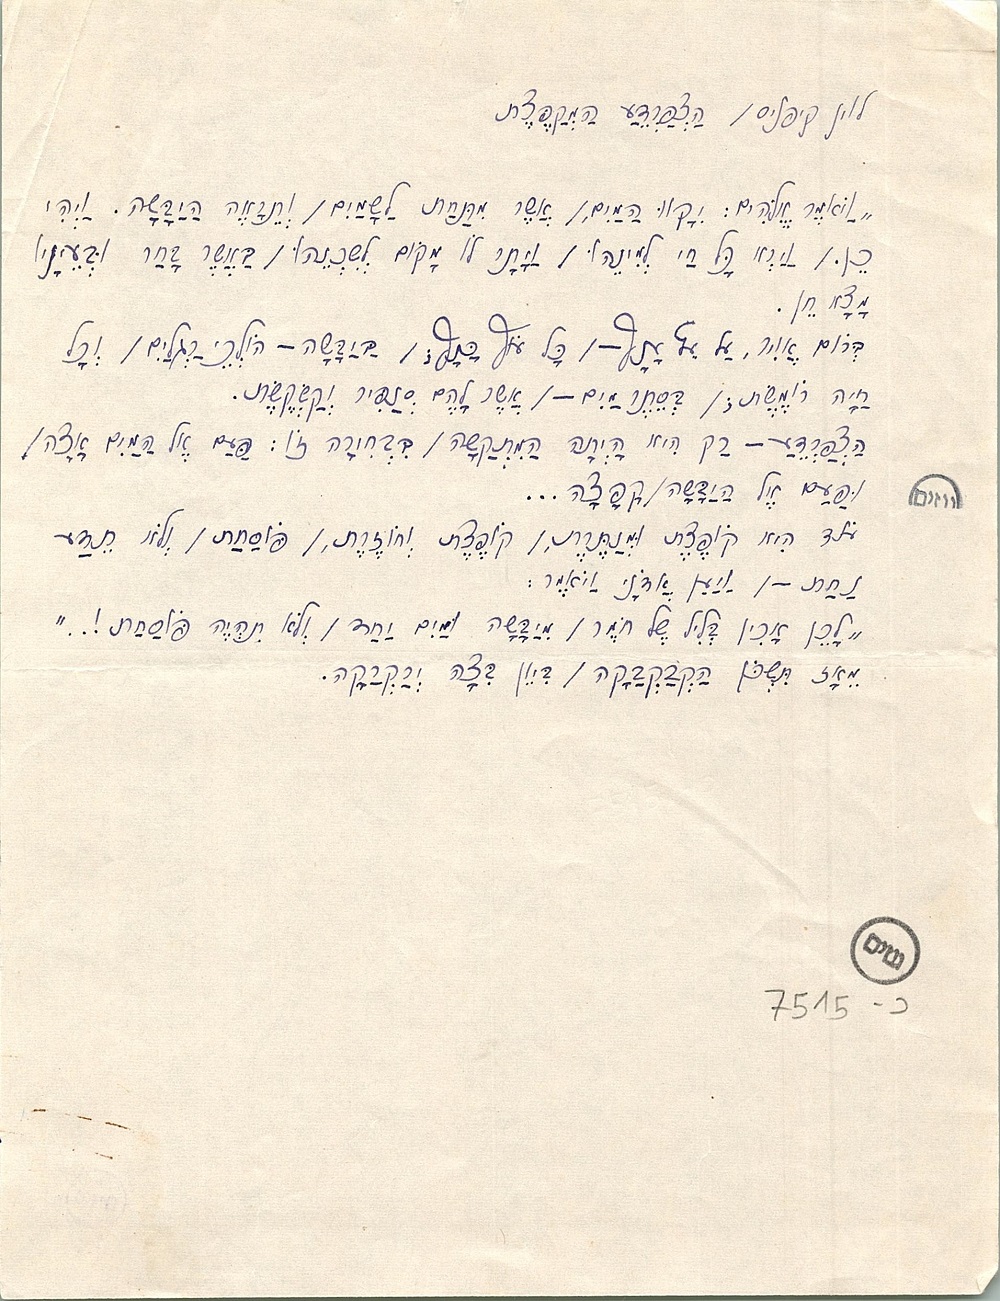 לוין קיפניס / הַצְּפַרְדֵּעַ הַמְקַפֶּצֶת
„וַיֹּאמֶר אֱלֹהִים: יִקָּווּ הַמַּיִם,/ אֲשֶׁר מִתַּחַת לַשָּׁמַיִם / וְתֵרָאֶה הַיַּבָּשָׁה. וַיְהִי
כֵן./ וַיַּרְא כָּל חַי לְמִינֵהוּ / וַיָּתָר לוֹ מָקוֹם לְשִׁכְנֵהוּ / בַּאֲשֶׁר בָּחַר וּבְעֵינָיו
מָצָא חֵן.
בְּרוּם אֲוִיר, עַל עָנָף –/ כָּל עוֹף כָּנָף;/ בַּיַּבָּשָׁה – הוֹלְכֵי רַגְלַיִם / וְכָל
חַיָּה רוֹמֶשֶׂת;/ בְּסֵתֶר מַיִם –/ אֲשֶׁר לָהֶם סְנַפִּיר וְקַשְׂקֶשֶׂת.
הַצְּפַרְדֵּעַ – רַק הִיא הָיְתָה הַמִּתְקַשָּׁה / בִּבְחִירָה זוֹ: פַּעַם אֶל הַמַּיִם אָצָה /
וּפַעַם אֶל הַיַּבָּשָׁה / קָפָצָה ...
עוֹד הִיא קוֹפֶצֶת וּמְנַתֶּרֶת,/ קוֹפֶצֶת וְחוֹזֶרֶת,/ פּוֹסַחַת / וְלֹא תֵדַע
נַחַת –/ וַיַּעַן אֲדֹנָי וַיֹּאמֶר:
„לָכֵן אָכִין בְּלִיל שֶׁל חֹמֶר / מִיַּבָּשָׁה וּמַיִם יַחַד / וְלֹא תִהְיֶה פּוֹסַחַת!.."
מֵאָז תִּשְׁכֹּן הַקְּבַקְבַקָּה / בִּיוֵן בִּצָּה יְרַקְרַקָּה.
כ- 7515